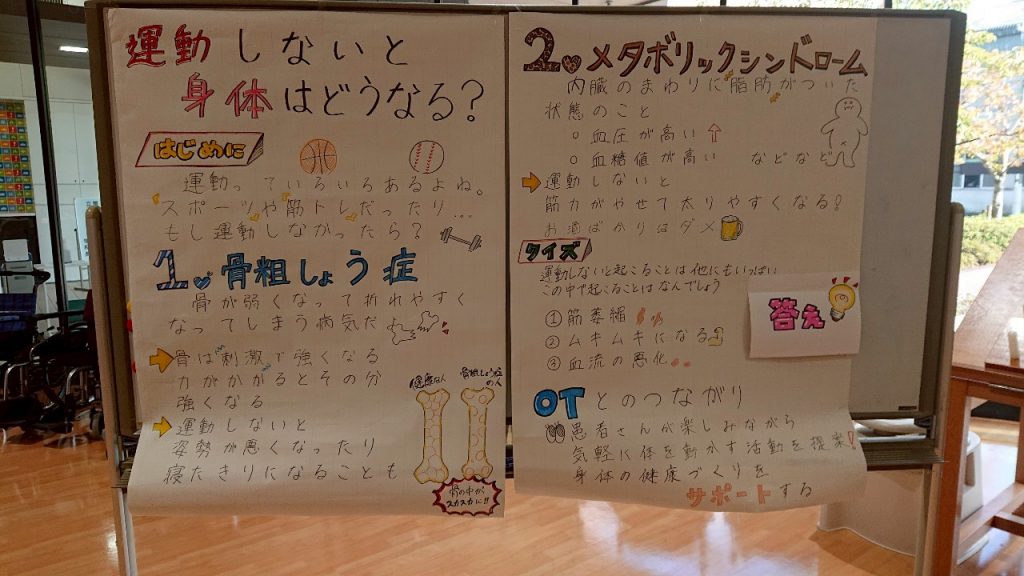 運動しないと
身体はどうなる?
はじめに
運動っていろいろあるよね。
スポーツや筋トレだったり…
もし運動しなかったら?
1.骨粗しょう症
骨が弱くなって折れやすく
なってしまう病気だよ
骨は刺激で強くなる
力がかかるとその分
強くなる
運動しないと
姿勢が悪くなったり
寝たきりになることも
健康な人
骨粗しょう症
の人
骨の中が
スカスカに!!
2.メタボリックシンドローム
内臓のまわりに脂肪がついた
状態のこと
○ 血圧が高い ↑
○ 血糖値が高い などなど
運動しないと
筋力がやせて太りやすくなる?
お酒ばかりはダメ
クイズ
運動しないと起こることは他にもいっぱい
この中で起こることはなんでしょう
①筋萎縮
②ムキムキになる
③血流の悪化
答え
OTとのつながり
患者さんが楽しみながら
気軽に体を動かす活動を提案!
身体の健康づくりを
サポートする